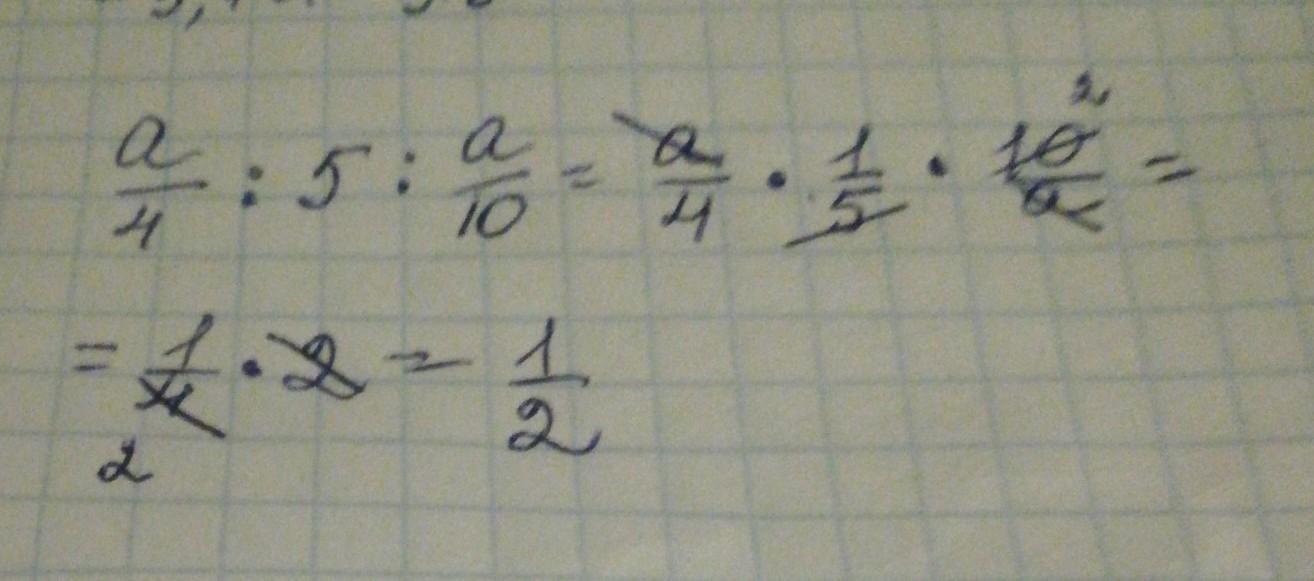 a/4 : 5 : a/10 = a/4 · 1/5 · 10/a 2 =
= 1/4 2 · 2 = 1/2